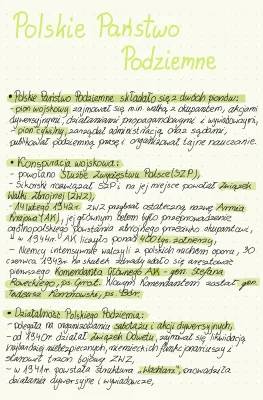 Polskie Państwo
Podziemne
• Polskie Państwo Podziemne składało się z dwóch pionów:
- pion wojskowy zajmował się m.in. walką z okupantem, akcjami
dywersyjnymi, działaniami propagandowymi i wywiadowymi,
- pion cywilny, zarządzał administracją oraz sądami,
publikował podziemną prasę i organizował tajne nauczanie.
• Konspiracja wojskowa:
- powołano Służbę Zwycięstwu Polsce (SZP),
- Sikorski rozwiązał SZP i na jej miejsce powołał Związek
Walki Zbrojnej (ZWZ),
- 14 lutego 1942 r. ZWZ przybrał ostateczną nazwę Armia
Krajowa (AK), jej głównym celem było przeprowadzenie
ogólnopolskiego powstania zbrojnego przeciwko okupantowi,
- w 1944 r. AK liczyło ponad 400 tyś. żołnierzy,
- Niemcy intensywnie walczyli z polskich ruchem oporu, 30
czerwca 1943 r. na skutek zdrady udało się aresztować
pierwszego Komendanta Głównego AK - gen. Stefana
Roweckiego, ps. Grot. Nowym komendantem został gen.
Tadeusz Komorowski, ps. Bór.
• Działalność Polskiego Podziemia:
- polegała na organizowaniu sabotażu i akcji dywersyjnych,
- od 1940 r. działał Związek Odwetu, zajmował się likwidacją
najbardziej niebezpiecznych, niemieckich funkcjonariuszy i
stanowił trzon bojowy ZWZ,
- w 1941 r. powstała struktura „Wachlarz", prowadziła
działania dywersyjne i wywiadowcze,